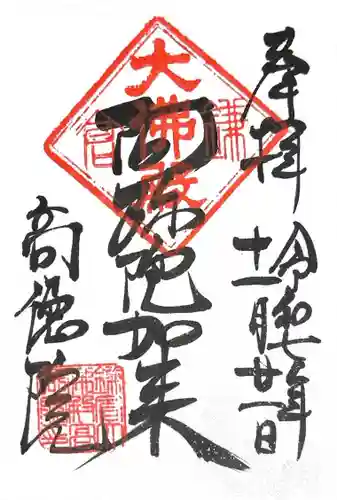 奉拝
令和七年
十一月廿一日
大佛殿
鎌倉
阿弥陀如来
高徳院